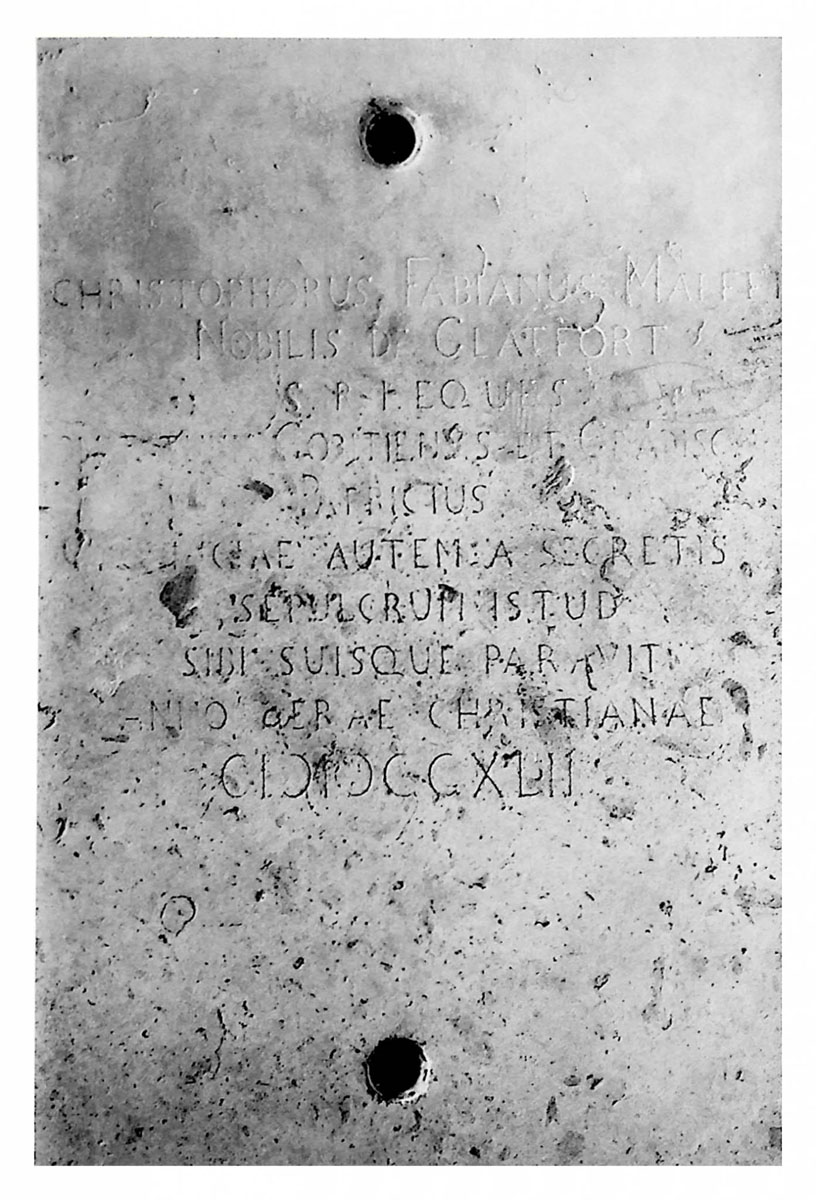 CHRISTOPHORUS FABIANUS
NOBILIS DE CLATFORT
S. R. I. EQUES
GORITIENSIS ET GRADISC
PATRICIUS
AUTEM A SECRETIS
SEPULCRUM ISTUD
SIBI SUISQUE PARAVIT
ANNO AERAE CHRISTIANAE
CIƆIƆCCXLII